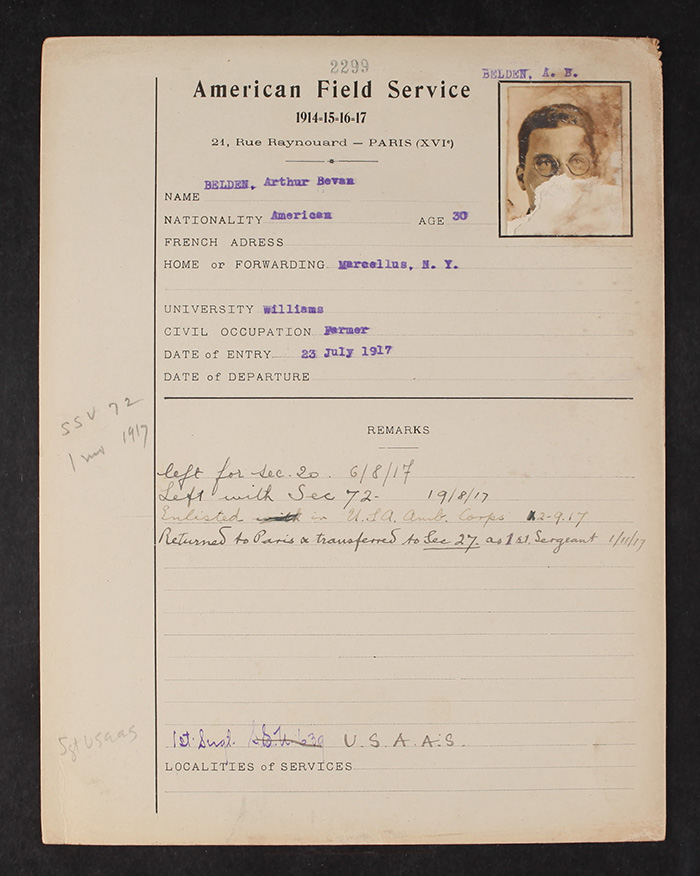 2299
BELDEN, A. B.
American Field Service
1914-15-16-17
21, Rue Raynouard — PARIS (XVIe)
BELDEN, Arthur Bevan
NAME
NATIONALITY American AGE 30
FRENCH ADRESS
HOME or FORWARDING Marcellus, N. Y.
UNIVERSITY Williams
CIVIL OCCUPATION Farmer
DATE of ENTRY 23 July 1917
DATE of DEPARTURE
SSV 72
1 1917
REMARKS
left for sec. 20. 6/8/17
Left with Sec 72- 19/8/17
Enlisted with in U.S.A. Amb. Corps 2-9.17
Returned to Paris & transferred to Sec 27. as 1st. Sergeant 1/11/17
Sgt USAAS
1st. S.S.U. 639 U.S.A.A.S.
LOCALITIES of SERVICES